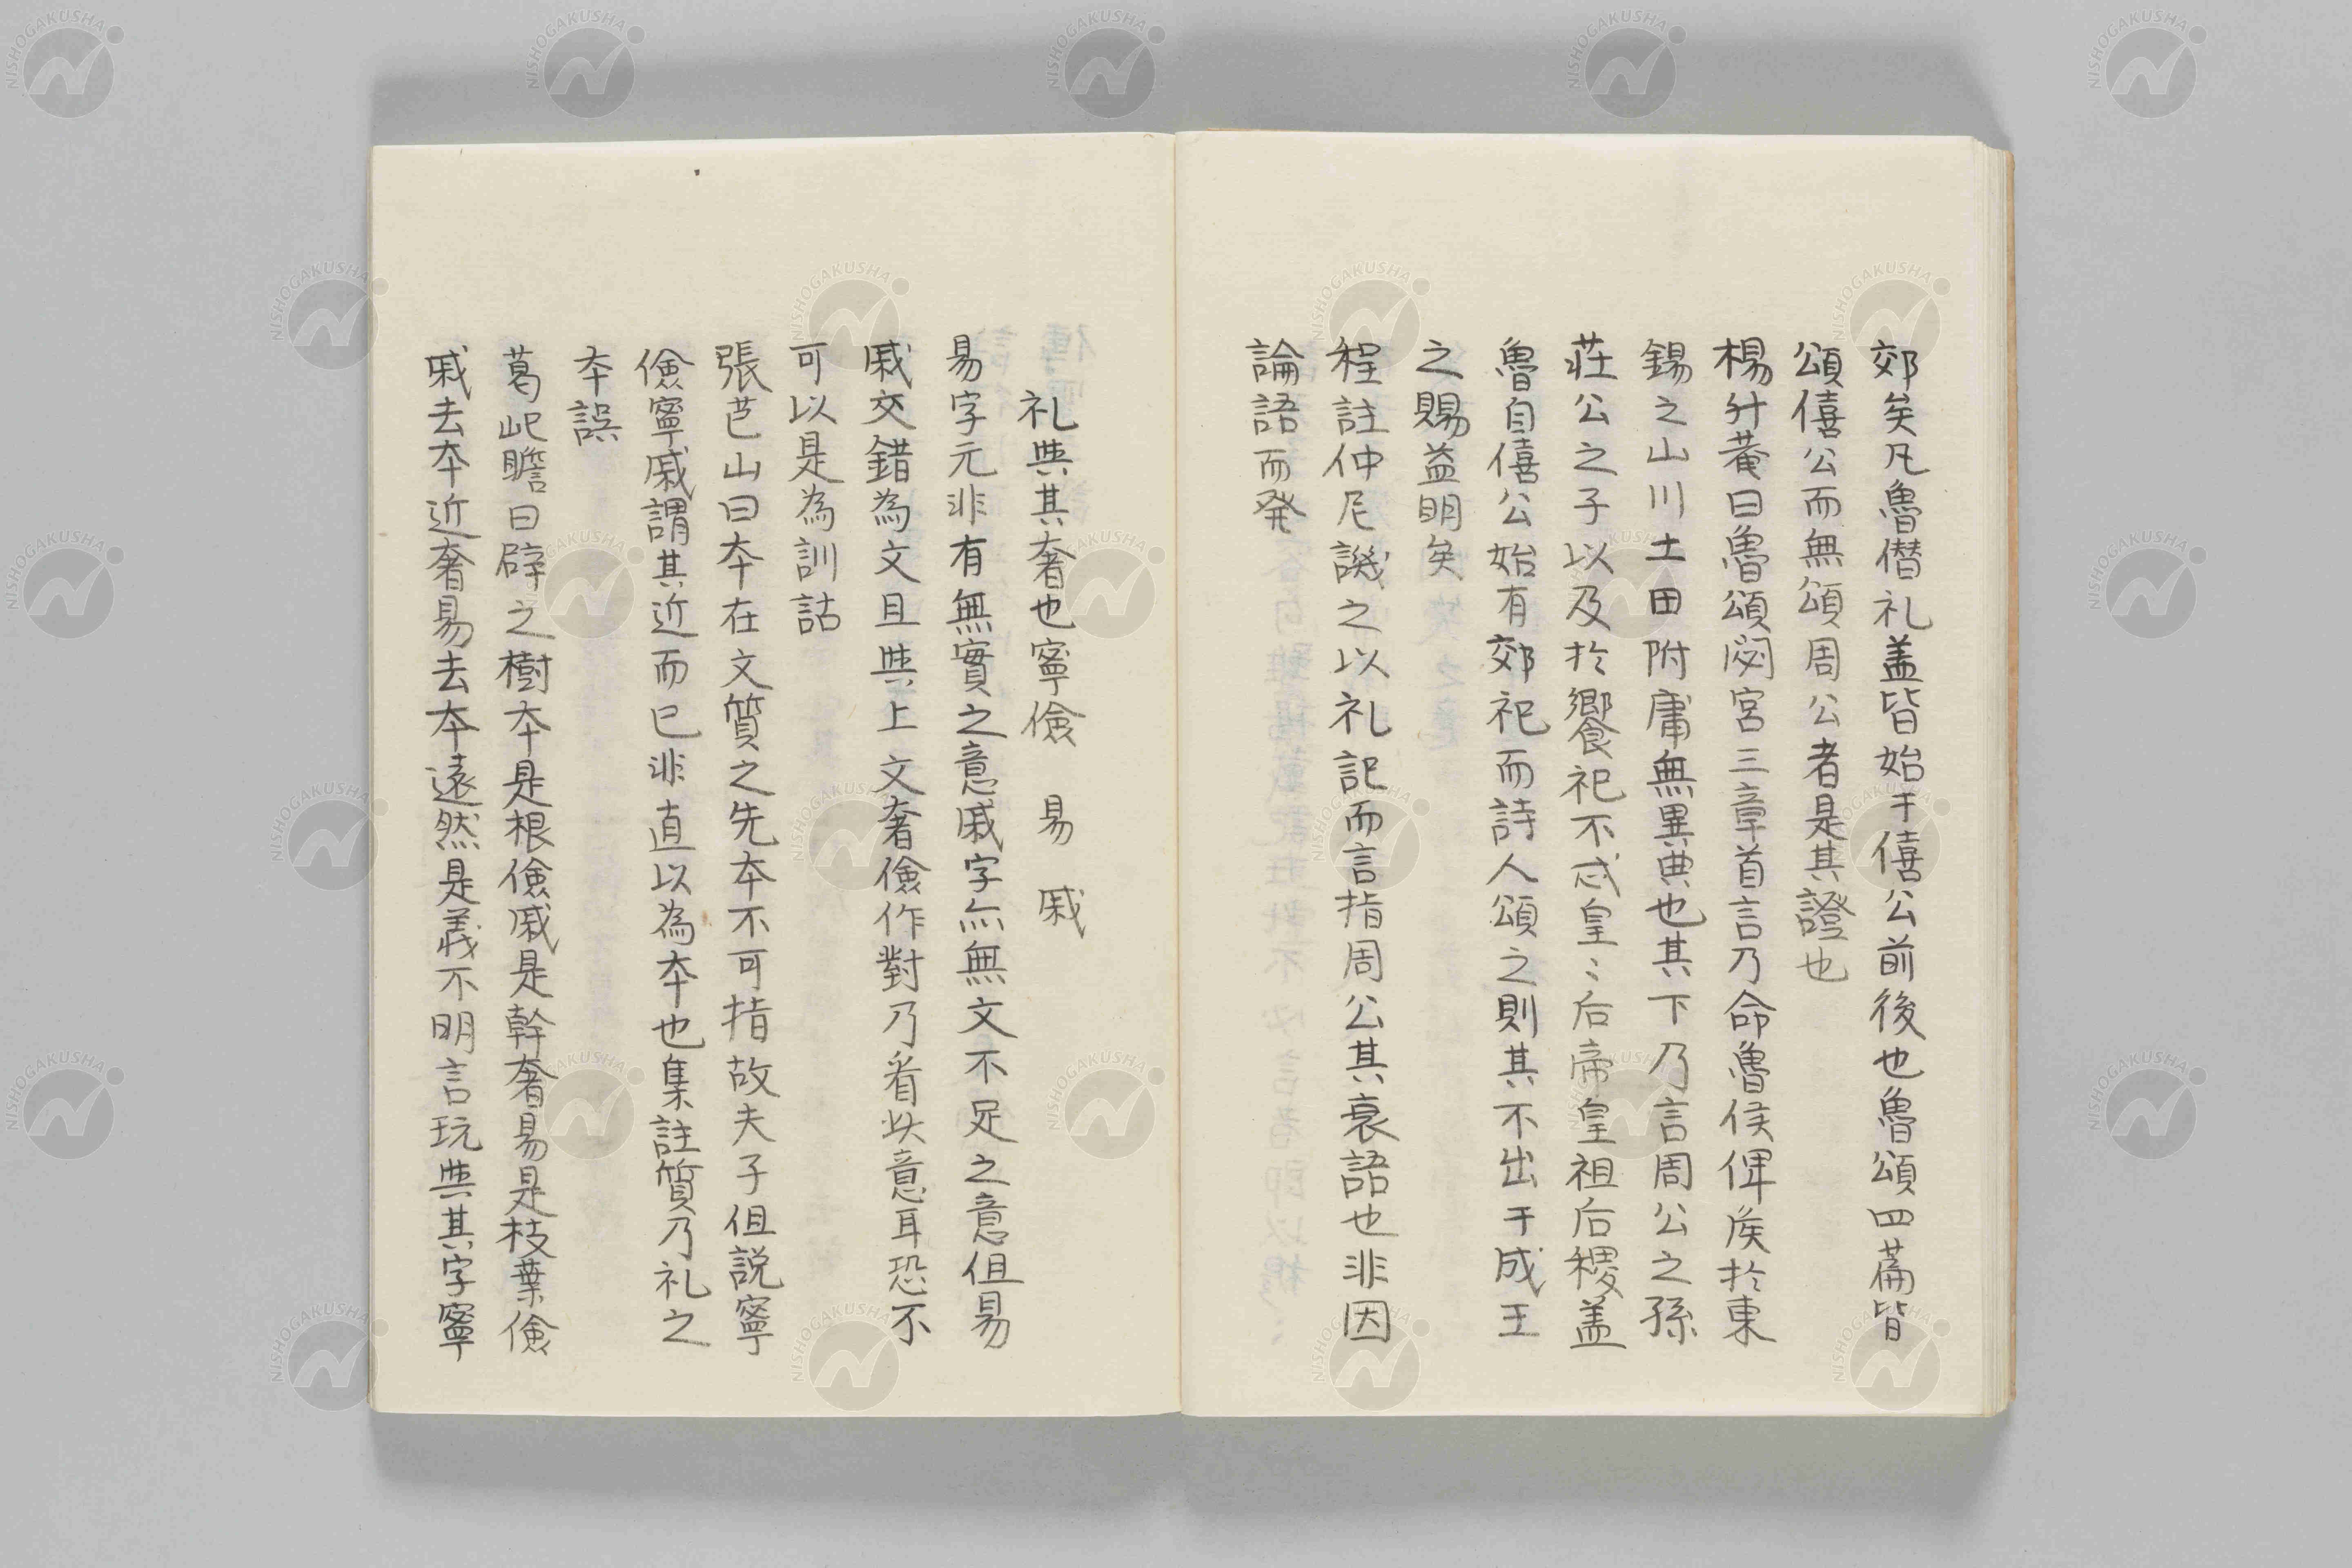 郊矣凡魯僭礼盖皆始于僖公前後也魯頌四萹皆
頌僖公而無頌周公者是其證也
楊升菴曰魯頌閟宮三章首言乃命魯侯俾侯於東
錫之山川土田附庸無異典也其下乃言周公之孫
莊公之子以及於饗祀不忒皇〻后帝皇祖后稷盖
魯自僖公始有郊祀而詩人頌之則其不出于成王
之賜益明矣
程註仲尼譏之以礼記而言指周公其衰語也非因
論語而発
礼與其奢也寧儉　易　戚
易字元非有無實之意戚字亦無文不足之意但易
戚交錯為文且與上文奢儉作對乃看此意耳恐不
可以是為訓詁
張芑山曰本在文質之先本不可指故夫子但説寧
儉寧戚謂其近而已非直以為本也集註質乃礼之
本誤
葛屺瞻曰辟之樹本是根儉戚是幹奢易是枝葉儉
戚去本近奢易去本遠然是義不明言玩與其字寧
NISHOGAKUSHA